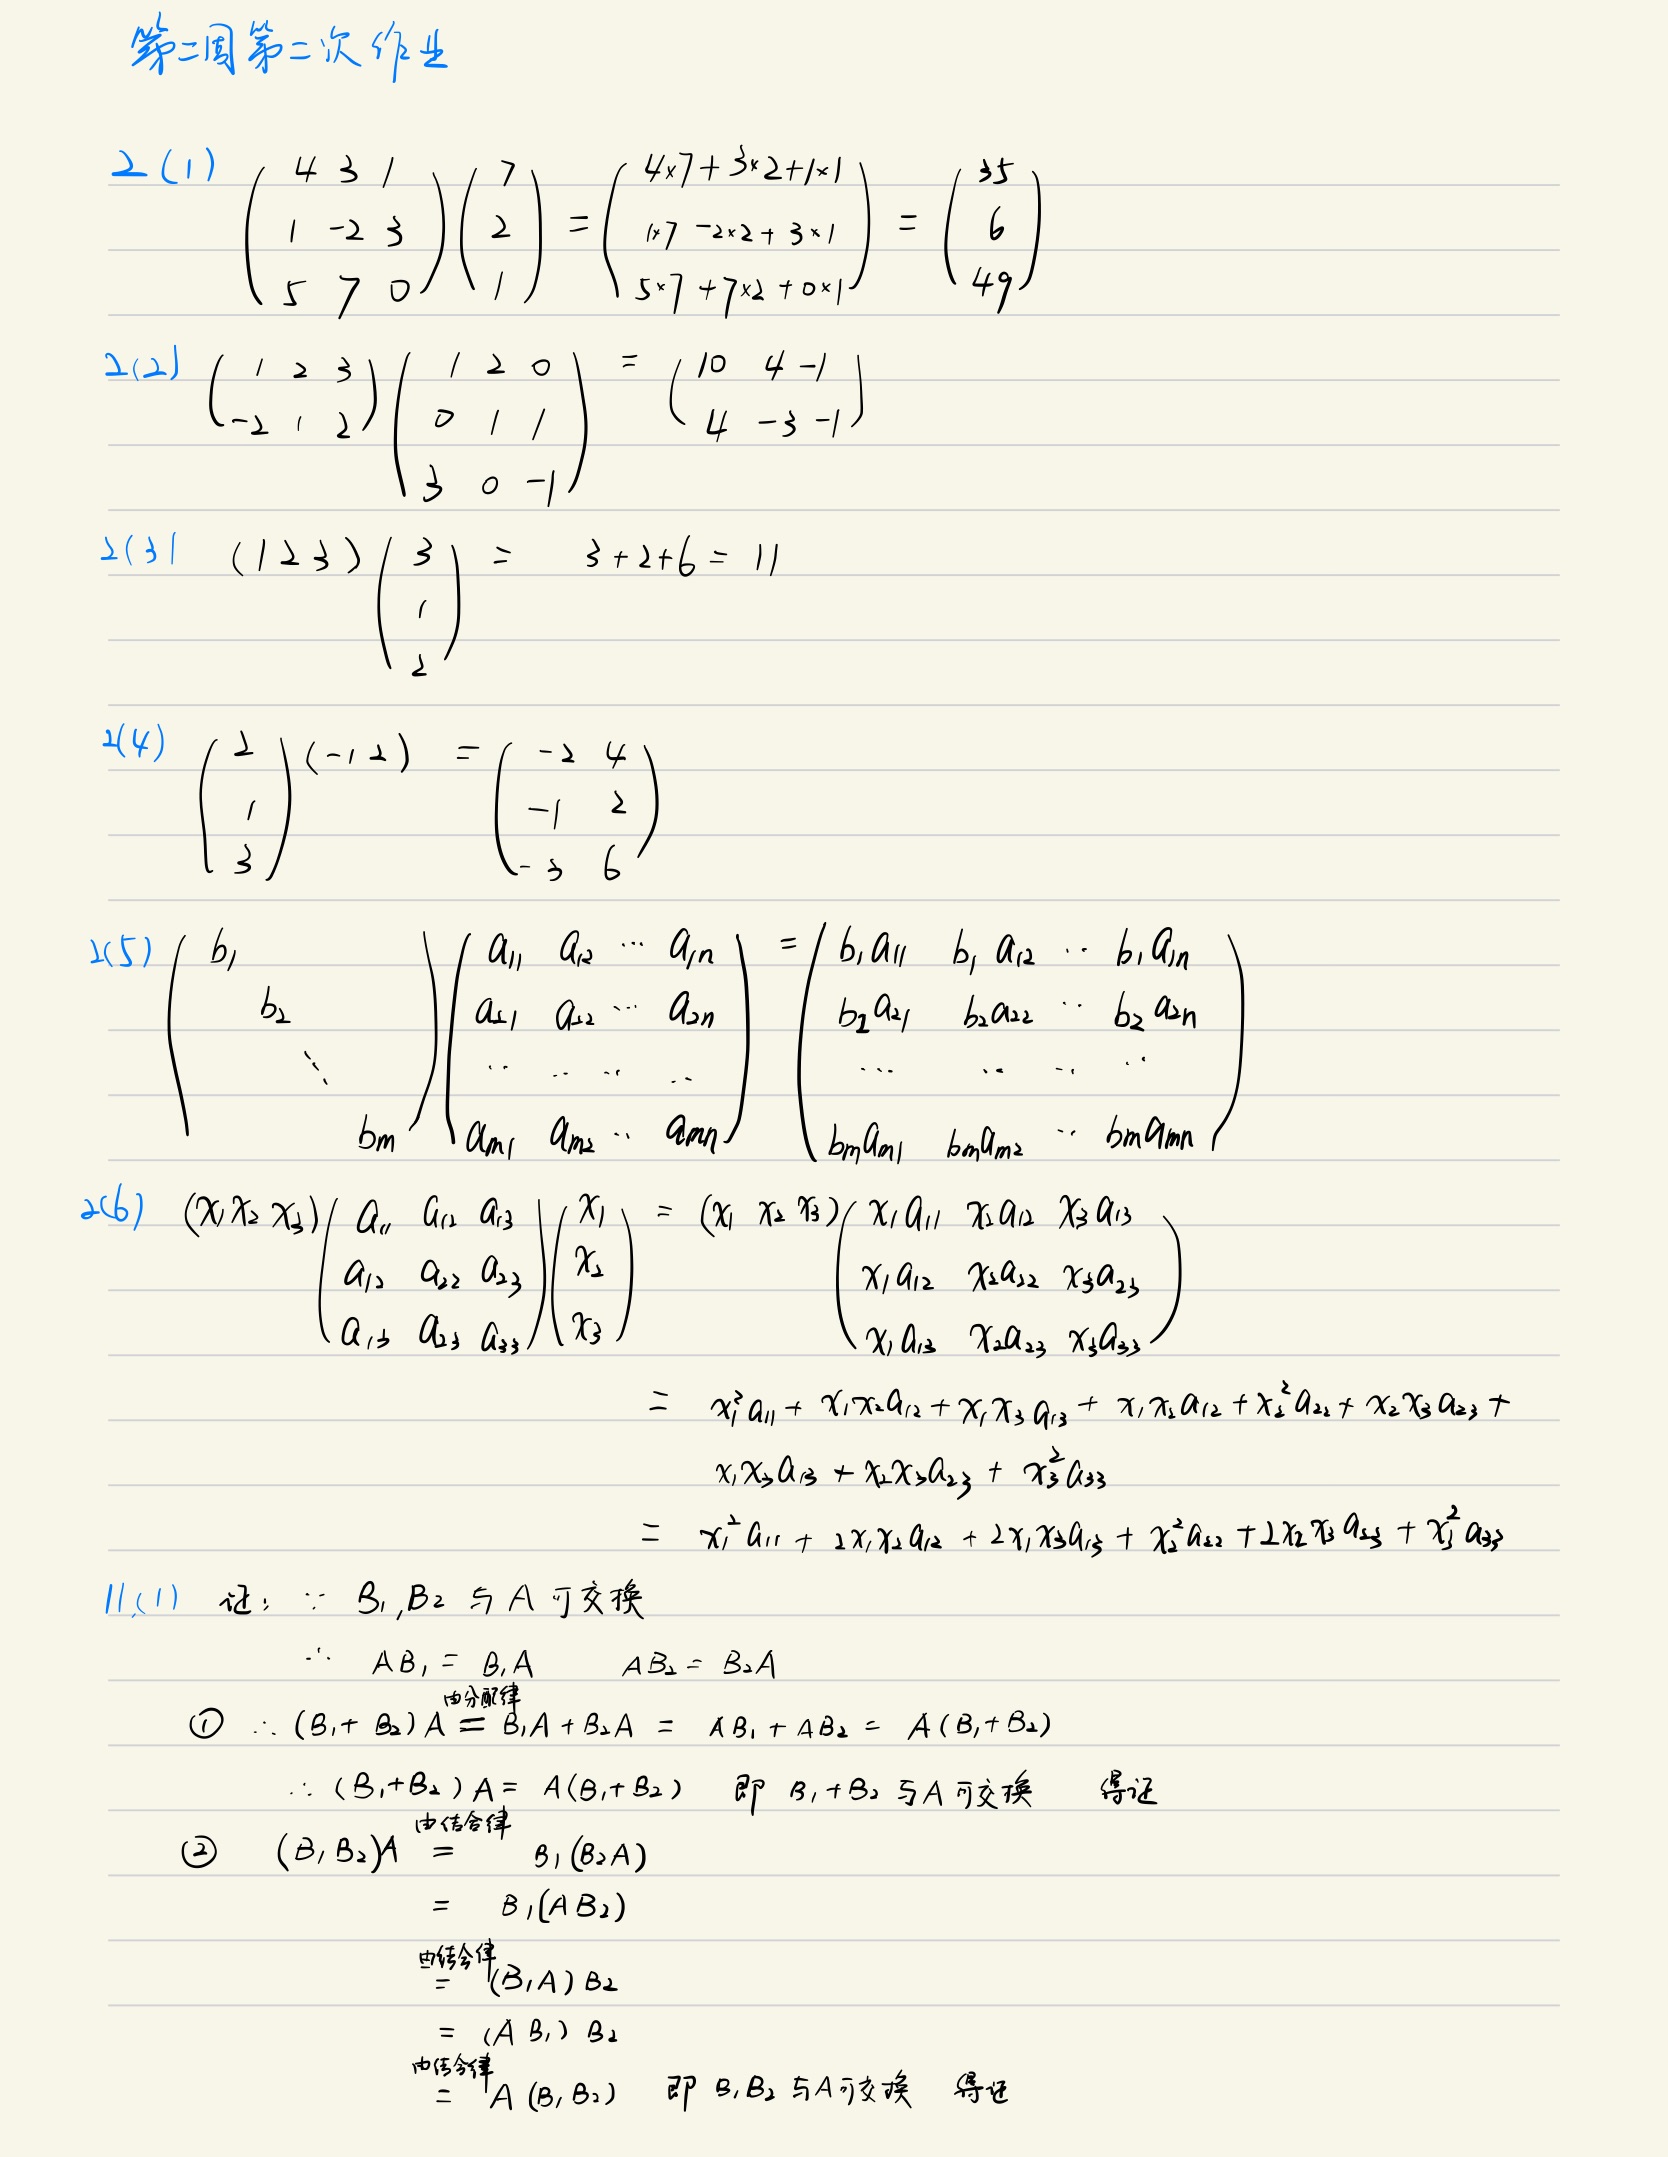 第二周第二次作业
2(1) (4 3 1; 1 -2 3; 5 7 0)(7; 2; 1) = (4×7+3×2+1×1; 1×7-2×2+3×1; 5×7+7×2+0×1) = (35; 6; 49)
2(2) (1 2 3; -2 1 2)(1 2 0; 0 1 1; 3 0 -1) = (10 4 -1; 4 -3 -1)
2(3) (1 2 3)(3; 1; 2) = 3+2+6 = 11
2(4) (2; 1; 3)(-1 2) = (-2 4; -1 2; -3 6)
2(5) (b₁; b₂; ⋱; bm)(a₁₁ a₁₂ ⋯ a₁n; a₂₁ a₂₂ ⋯ a₂n; ⋯ ⋯ ⋯ ⋯; am₁ am₂ ⋯ amn) = (b₁a₁₁ b₁a₁₂ ⋯ b₁a₁n; b₂a₂₁ b₂a₂₂ ⋯ b₂a₂n; ⋯ ⋯ ⋯ ⋯; bmam₁ bmam₂ ⋯ bmamn)
2(6) (x₁ x₂ x₃)(a₁₁ a₁₂ a₁₃; a₁₂ a₂₂ a₂₃; a₁₃ a₂₃ a₃₃)(x₁; x₂; x₃) = (x₁ x₂ x₃)(x₁a₁₁ x₂a₁₂ x₃a₁₃; x₁a₁₂ x₂a₂₂ x₃a₂₃; x₁a₁₃ x₂a₂₃ x₃a₃₃)
= x₁²a₁₁ + x₁x₂a₁₂ + x₁x₃a₁₃ + x₁x₂a₁₂ + x₂²a₂₂ + x₂x₃a₂₃ +
x₁x₃a₁₃ + x₂x₃a₂₃ + x₃²a₃₃
= x₁²a₁₁ + 2x₁x₂a₁₂ + 2x₁x₃a₁₃ + x₂²a₂₂ + 2x₂x₃a₂₃ + x₃²a₃₃
11.(1) 证: ∵ B₁,B₂ 与 A 可交换
∴ AB₁ = B₁A AB₂ = B₂A
由分配律
① ∴ (B₁+B₂)A = B₁A+B₂A = AB₁+AB₂ = A(B₁+B₂)
∴ (B₁+B₂)A = A(B₁+B₂) 即 B₁+B₂ 与 A 可交换 得证
由结合律
② (B₁B₂)A = B₁(B₂A)
= B₁(AB₂)
由结合律
= (B₁A)B₂
= (AB₁)B₂
由结合律
= A(B₁B₂) 即 B₁B₂ 与 A 可交换 得证